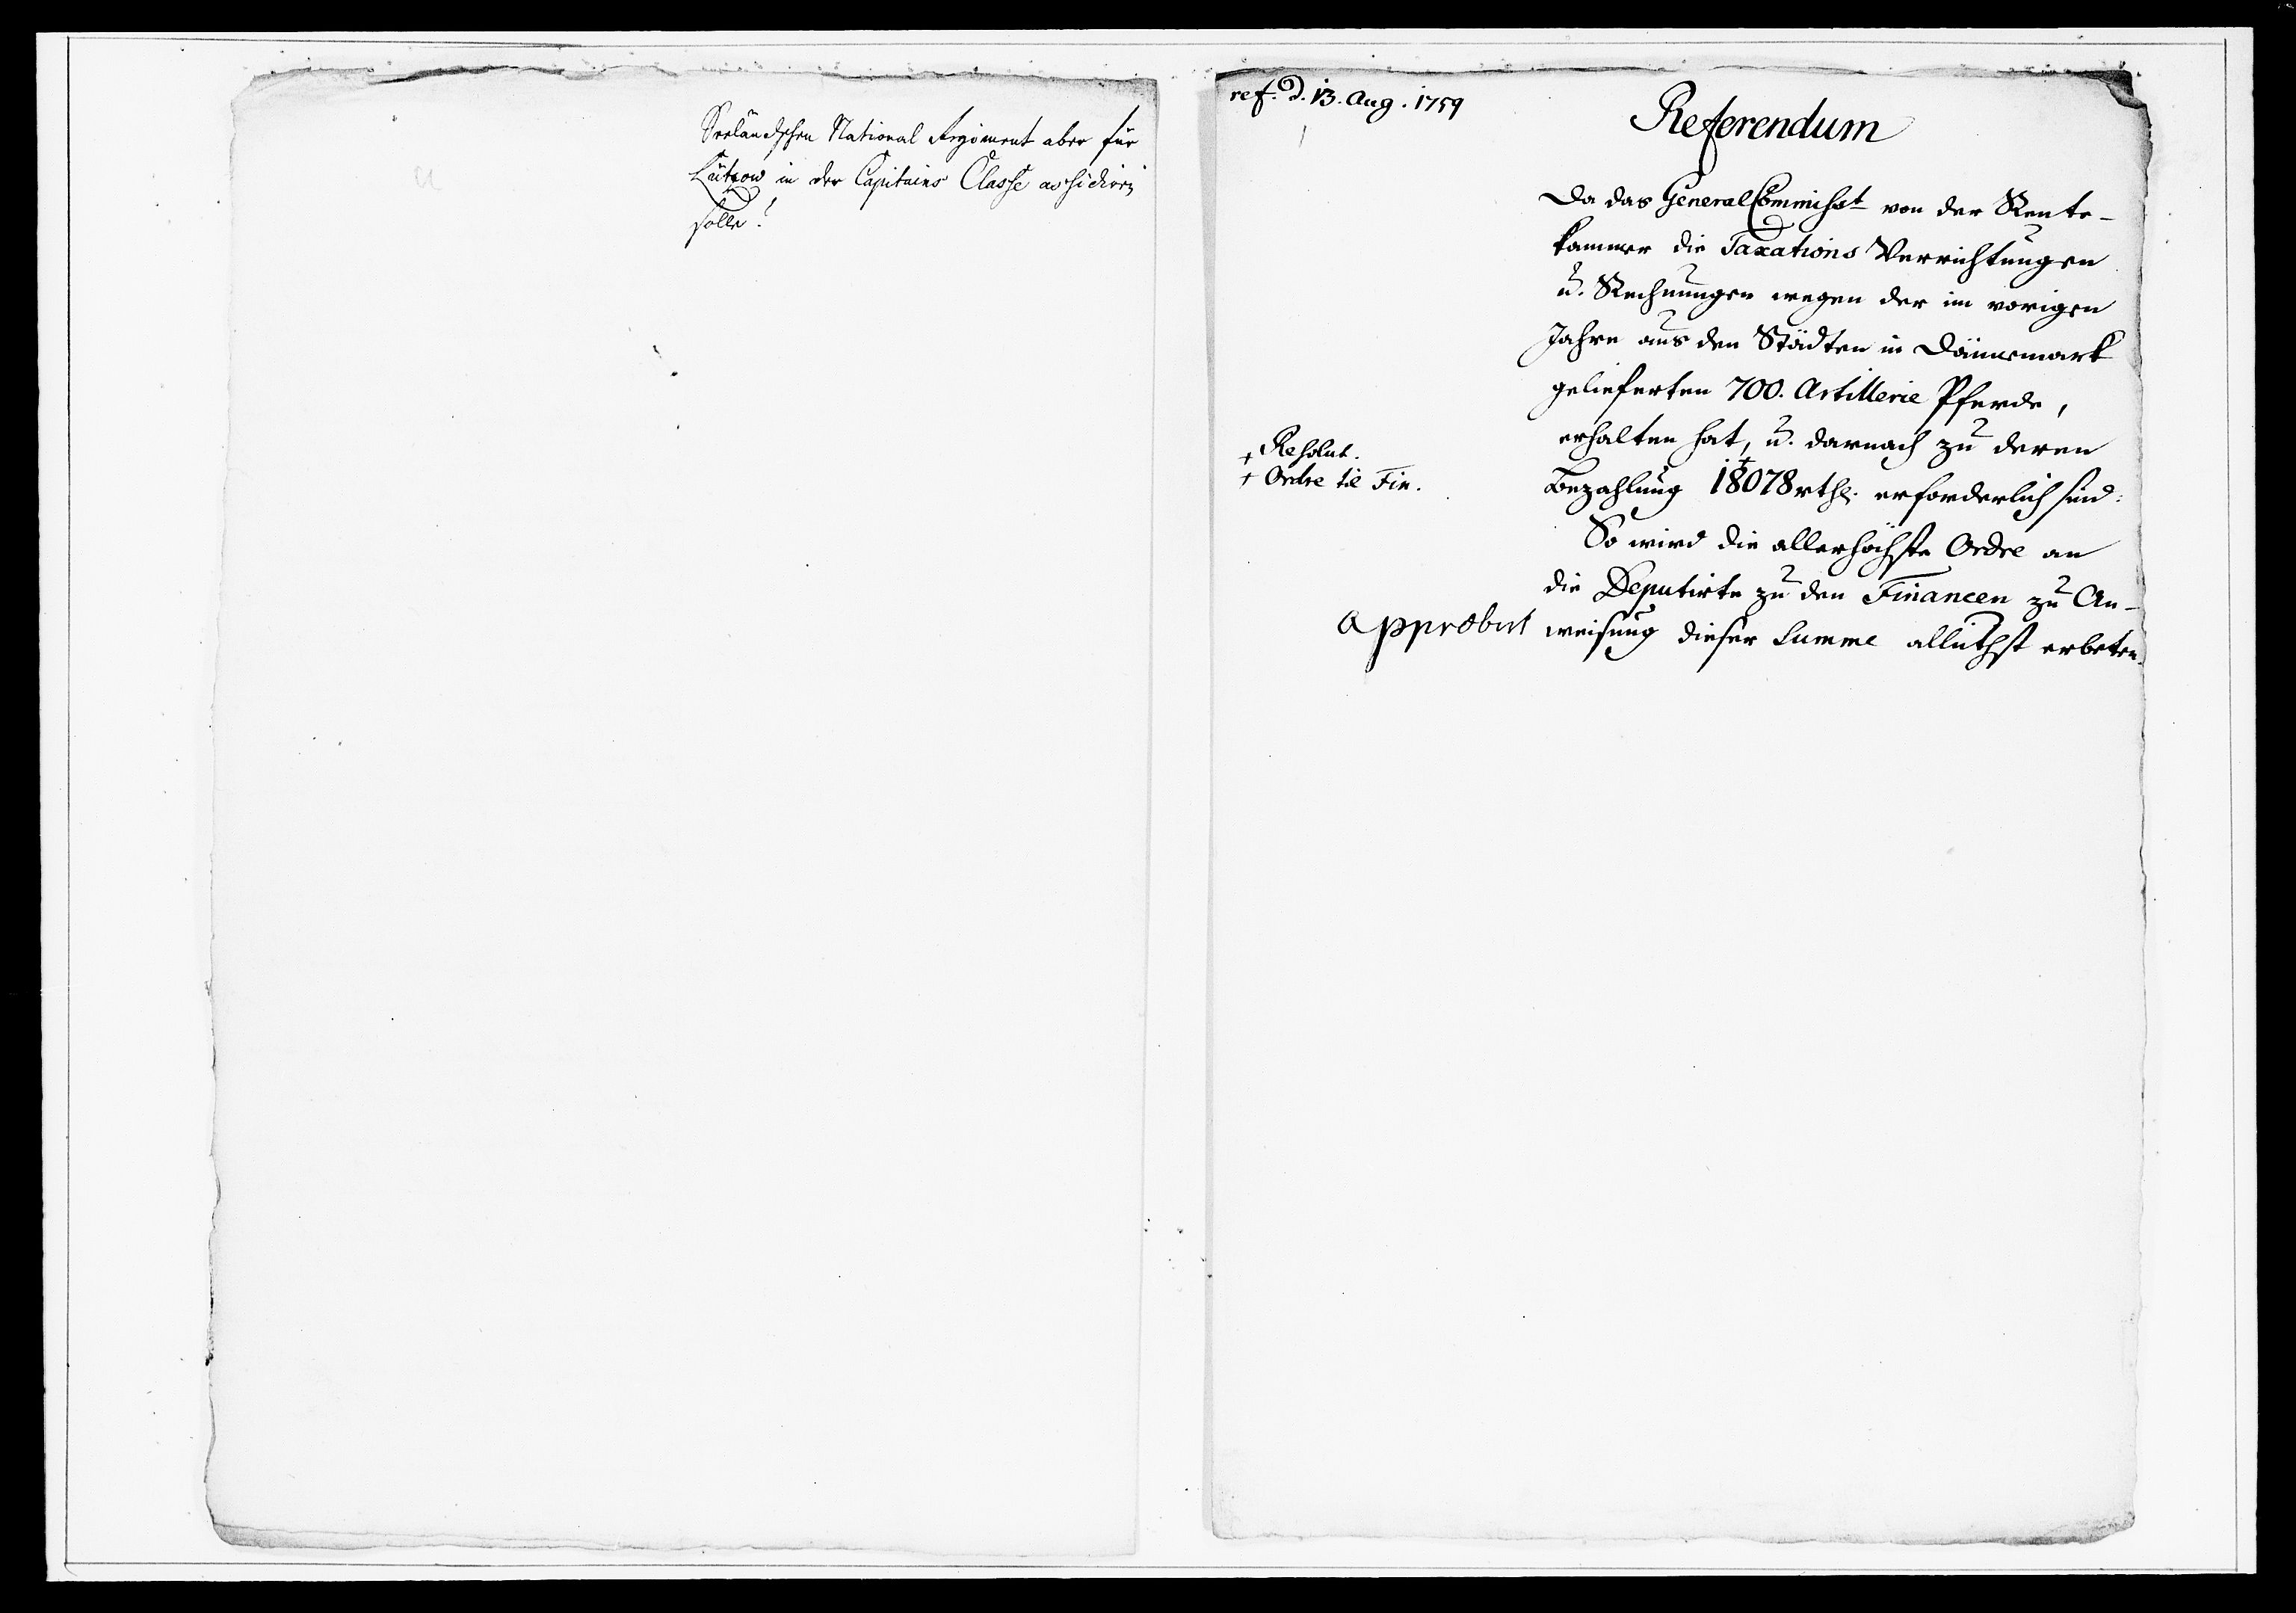 Seeländschen National Regiment aber für
Lützow in der Capitains Classe assidiren
solle?
ref. d. 13. Aug. 1759
Referendum
Da das General Commissat von der Rente-
kammer die Taxations Verrichtungen
u. Rechnungen wegen der im vorigen
Jahre aus den Städten in Dännemark
gelieferten 700. Artillerie Pferde,
erhalten hat, u. darnach zu deren
Bezahlung 18078 rthl. erforderlich sind:
+ Resolut.
+ Ordre til Fin.
So wird die allerhöchste Ordre an
die Deputirte zu den Financen zu An-
weisung dieser Summe allnthst erbeten.
approbirt